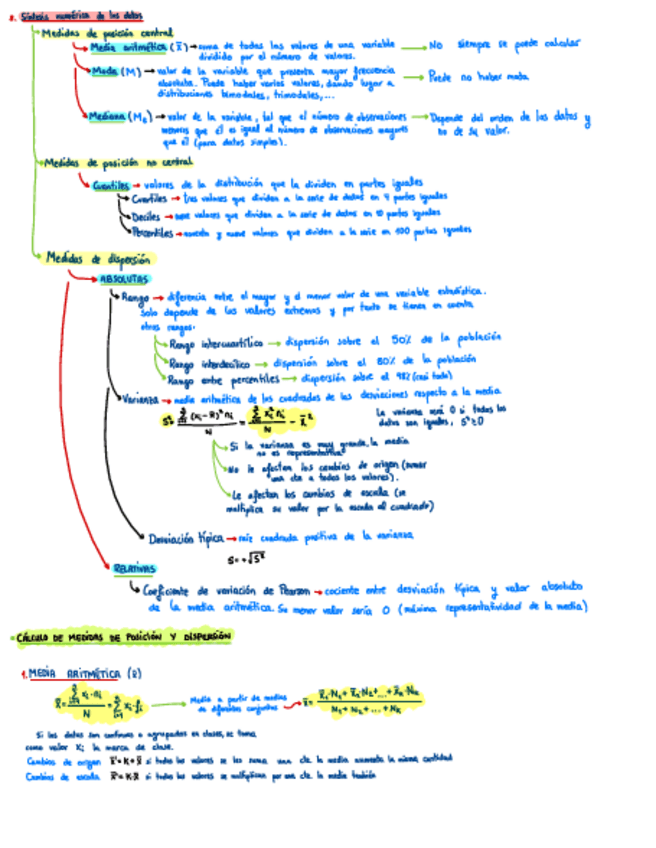 2. Síntesis numérica de los datos
Medidas de posición central
Media aritmética (x̄) → suma de todos los valores de una variable → No siempre se puede calcular
dividido por el número de valores.
Moda (M) → valor de la variable que presenta mayor frecuencia → Puede no haber moda
absoluta. Puede haber varios valores, dando lugar a
distribuciones bimodales, trimodales,...
Mediana (Me) → valor de la variable, tal que el número de observaciones → Depende del orden de los datos y
menores que él es igual al número de observaciones mayores no de su valor.
que él (para datos simples).
Medidas de posición no central
Cuantiles → valores de la distribución que la dividen en partes iguales
Cuartiles → tres valores que dividen a la serie de datos en 4 partes iguales
Deciles → nueve valores que dividen a la serie de datos en 10 partes iguales
Percentiles → noventa y nueve valores que dividen a la serie en 100 partes iguales
Medidas de dispersión
ABSOLUTAS
Rango → diferencia entre el mayor y el menor valor de una variable estadística.
Solo depende de los valores extremos y por tanto se tienen en cuenta
otros rangos.
Rango intercuartílico → dispersión sobre el 50% de la población
Rango interdecílico → dispersión sobre el 80% de la población
Rango entre percentiles → dispersión sobre el 98% (casi todo)
Varianza → media aritmética de los cuadrados de las desviaciones respecto a la media
S² = Σ (xi - x̄)² ni / N = Σ xi² ni / N - x̄² La varianza será 0 si todos los
datos son iguales, S² ≥ 0
Si la varianza es muy grande, la media
no es representativa
No le afectan los cambios de origen (sumar
una cte a todos los valores).
Le afectan los cambios de escala (se
multiplica su valor por la escala al cuadrado)
Desviación típica → raíz cuadrada positiva de la varianza
S = +√S²
RELATIVAS
Coeficiente de variación de Pearson → cociente entre desviación típica y valor absoluto
de la media aritmética. Su menor valor sería 0 (máxima representatividad de la media)
CÁLCULO DE MEDIDAS DE POSICIÓN Y DISPERSIÓN
1. MEDIA ARITMÉTICA (x̄)
x̄ = Σ xi · ni / N = Σ xi · fi → Media a partir de medias de diferentes conjuntos → x̄ = x̄1·N1 + x̄2·N2 + ... + x̄k·Nk / N1 + N2 + ... + Nk
Si los datos son continuos o agrupados en clases, se toma
como valor xi la marca de clase.
Cambios de origen x̄' = K + x̄ si todos los valores se les suma una cte. la media aumenta la misma cantidad
Cambios de escala x̄' = K·x̄ si todos los valores se multiplican por una cte. la media también